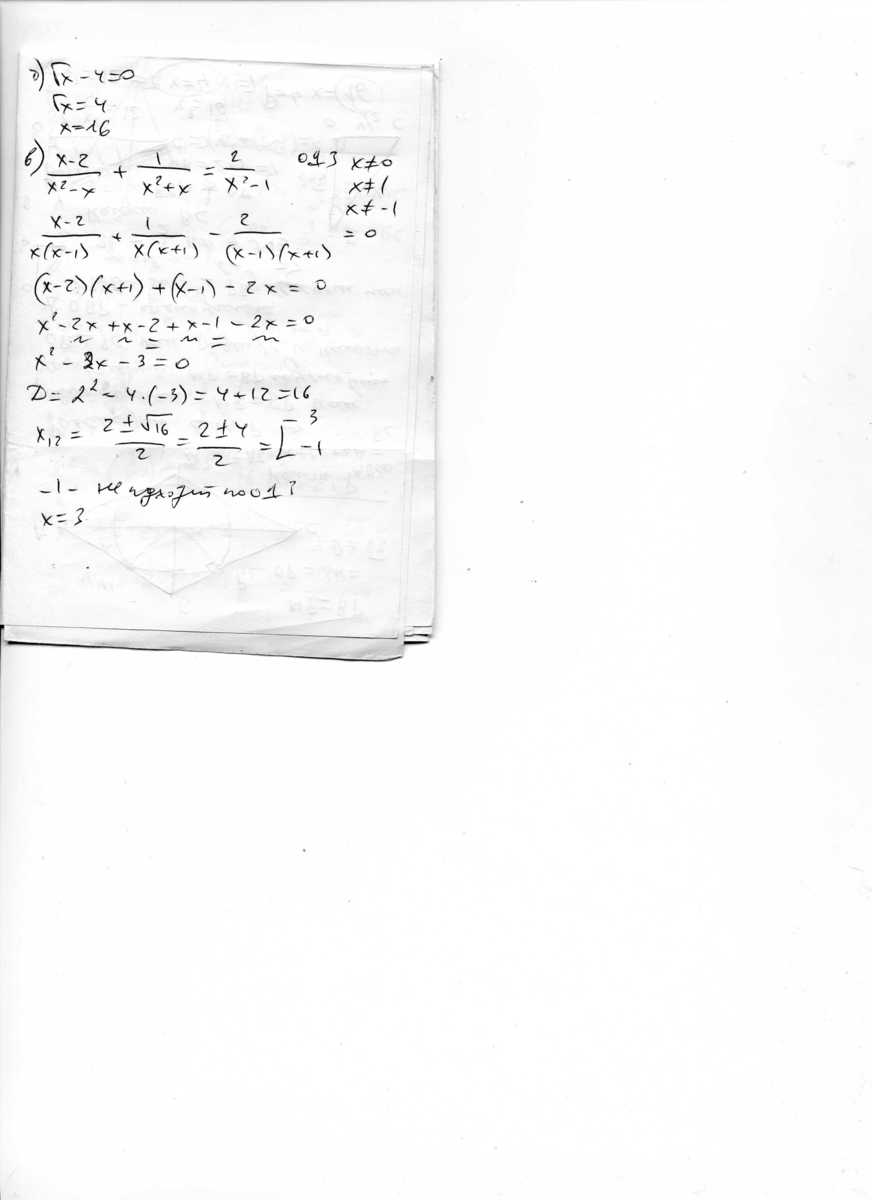 б) √x - 4 = 0
√x = 4
x = 16
в) (x-2)/(x²-x) + 1/(x²+x) = 2/(x²-1) ОДЗ x≠0
x≠1
x≠-1
(x-2)/(x(x-1)) + 1/(x(x+1)) - 2/((x-1)(x+1)) = 0
(x-2)(x+1) + (x-1) - 2x = 0
x² - 2x + x - 2 + x - 1 - 2x = 0
x² - 2x - 3 = 0
D = 2² - 4·(-3) = 4 + 12 = 16
x₁₂ = (2 ± √16)/2 = (2 ± 4)/2 = [ 3
-1
-1 - не подходит по ОДЗ
x = 3